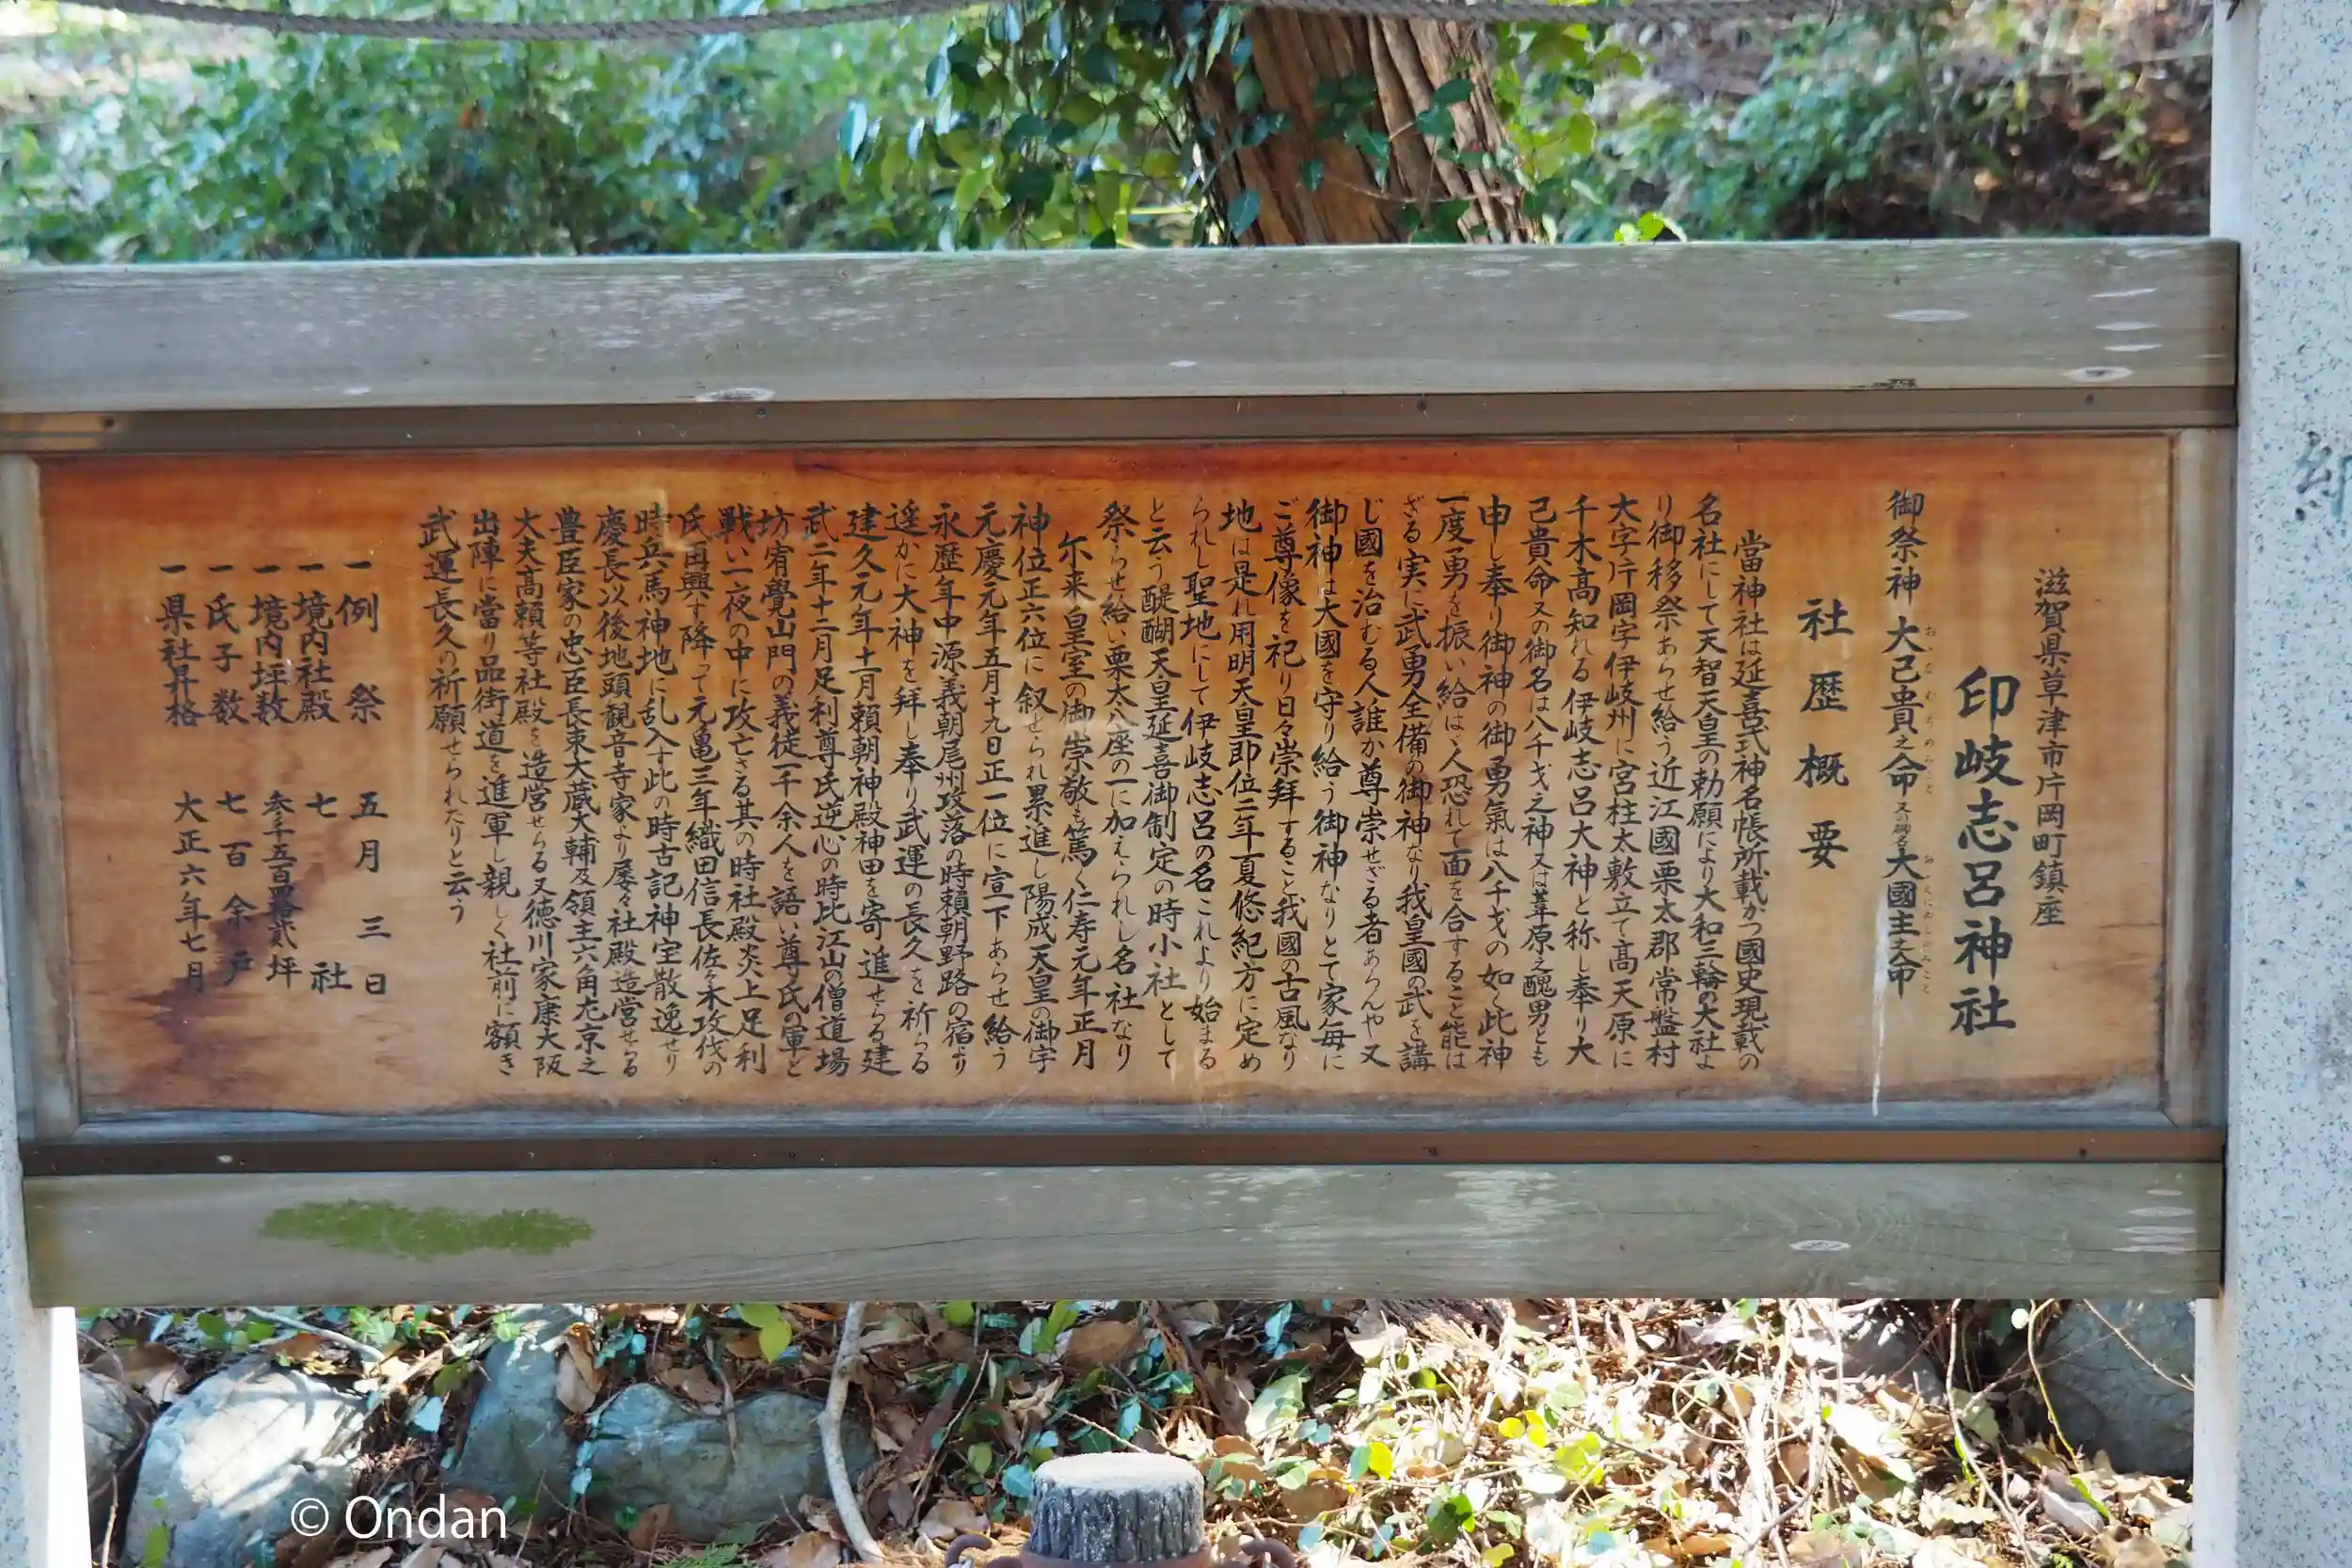 滋賀県草津市片岡町鎮座
印岐志呂神社
御祭神 大己貴之命 又の御名 大國主之命
社歴概要
當神社は延喜式神名帳所載かつ國史現載の
名社にして天智天皇の勅願により大和三輪の大社よ
り御移祭あらせ給う近江國栗太郡常盤村
大字片岡字伊岐州に宮柱太敷立て高天原に
千木高知れる伊岐志呂大神と称し奉り大
己貴命又の御名は八千戈之神又は葦原之醜男とも
申し奉り御神の御勇氣は八千戈の如く此神
一度勇を振い給はゞ人恐れて面を合すること能は
ざる実に武勇全備の御神なり我皇國の武を講
じ國を治むる人誰か尊崇せざる者あらんや又
御神は大國を守り給う御神なりとて家毎に
ご尊像を祀り日々崇拝すること我國の古風なり
地は是れ用明天皇即位二年夏悠紀方に定め
られし聖地にして伊岐志呂の名これより始まる
と云う醍醐天皇延喜御制定の時小社として
祭らせ給い栗太八座の一に加えられし名社なり
尓来皇室の御崇敬も篤く仁寿元年正月
神位正六位に叙せられ累進し陽成天皇の御宇
元慶元年五月十九日正一位に宣下あらせ給う
永歴年中源義朝尾州攻落の時頼朝野路の宿より
遥かに大神を拜し奉り武運の長久を祈らる
建久元年十一月頼朝神殿神田を寄進せらる建
武二年十二月足利尊氏逆心の時比江山の僧道場
坊宥覺山門の義徒一千余人を語い尊氏の軍と
戦い一夜の中に攻亡さる其の時社殿炎上足利
氏再興す降って元亀三年織田信長佐々木攻伐の
時兵馬神地に乱入す此の時古記神宝散逸せり
慶長以後地頭観音寺家より屡々社殿造営せらる
豊臣家の忠臣長束大蔵大輔及領主六角左京之
大夫高頼等社殿を造営せらる又徳川家康大阪
出陣に當り品街道を進軍し親しく社前に額き
武運長久の祈願せられたりと云う
一例祭 五月三日
一境内社殿 七社
一境内坪数 参千五百四拾貳坪
一氏子数 七百余戸
一県社昇格 大正六年七月
© Ondan